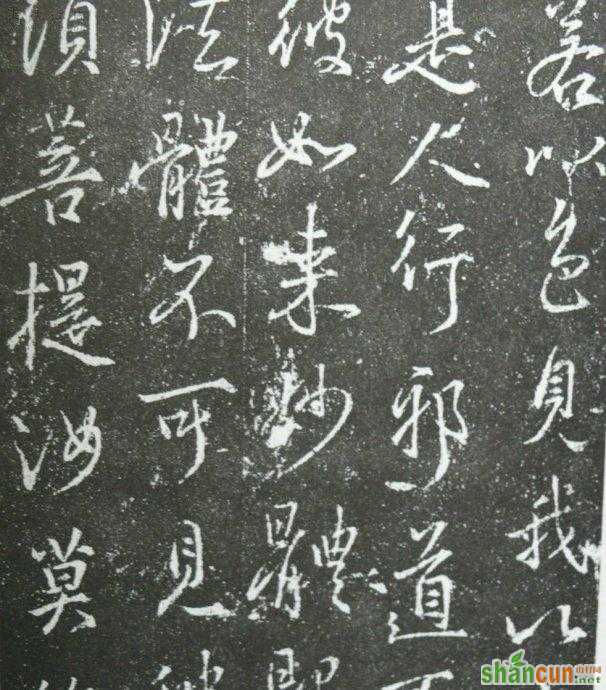 若以色見我以
是人行邪道不
彼如来妙體即
法體不可見彼
須菩提汝莫
shancun
山村网
.net